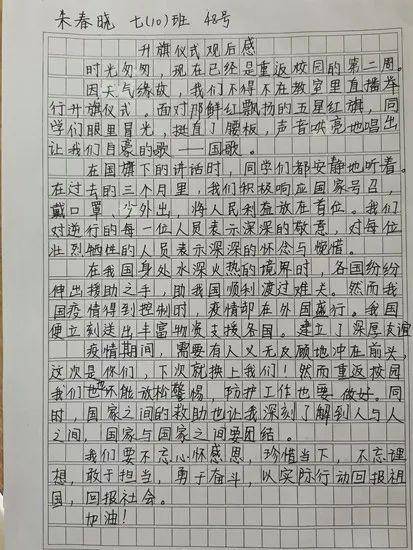 朱春晓 七(10)班 48号
升旗仪式观后感
时光匆匆，现在已经是重返校园的第二周。
因天气缘故，我们不得不在教室里直播举
行升旗仪式。面对那鲜红飘扬的五星红旗，同
学们眼里冒光，挺直了腰板，声音哄亮地唱出
让我们自豪的歌——国歌。
在国旗下的讲话时，同学们都安静地听着。
在过去的三个月里，我们积极响应国家号召，
戴口罩、少外出，将人民利益放在首位。我们
对逆行的每一位人员表示深深的敬意，对每位
壮烈牺牲的人员表示深深的怀念与惋惜。
在我国身处水深火热的境界时，各国纷纷
伸出援助之手，助我国顺利渡过难关。然而我
国疫情得到控制时，疫情却在外国盛行。我国
便立刻送出丰富物资支援各国。建立了深厚友谊
疫情期间，需要有人义无反顾地冲在前头，
这次是你们，下次就换上我们！然而重返校园
我们也不能放松警惕，防护工作也要做好。同
时，国家之间的救助也让我深刻了解到人与人
之间，国家与国家之间要团结。
我们要不忘心怀感恩，珍惜当下，不忘理
想，敢于担当，勇于奋斗，以实际行动回报祖
国，回报社会。
加油！